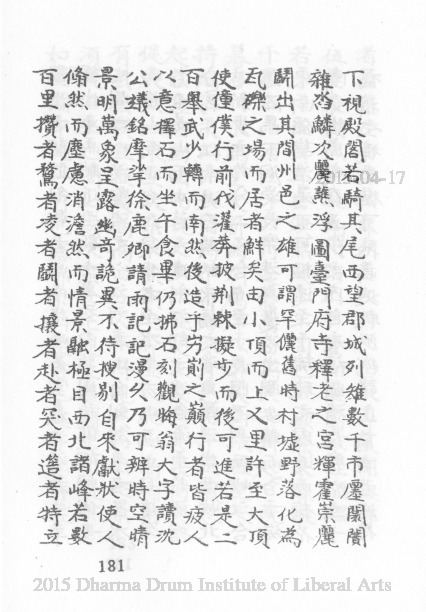 下視殿閣若騎其尾西望郡城列雉數千市廛闤闠
雜沓鱗次麗譙浮圖臺門府寺釋老之宮輝霍崇麗
鬭出其間州邑之雄可謂罕儷舊時村墟野落化為
瓦礫之場而居者鮮矣由小頂而上又里許至大頂
使僮僕行前伐灌莽披荆棘擬步而後可進若是二
百舉武少轉而南然後造乎穷崱之巔行者皆疲人
以意擇石而坐午食畢仍拂石刻觀晦翁大字讀沈
公䥴銘摩挲徐鹿卿請雨記記漫乆乃可辨時空晴
景明萬象呈露幽奇詭異不待搜剔自來獻狀使人
翛然而塵慮消澹然而情景融極目西北諸峰若數
百里攢者騖者凌者鬭者攘者赴者突者簉者特立
181
2015-04-17
2015 Dharma Drum Institute of Liberal Arts